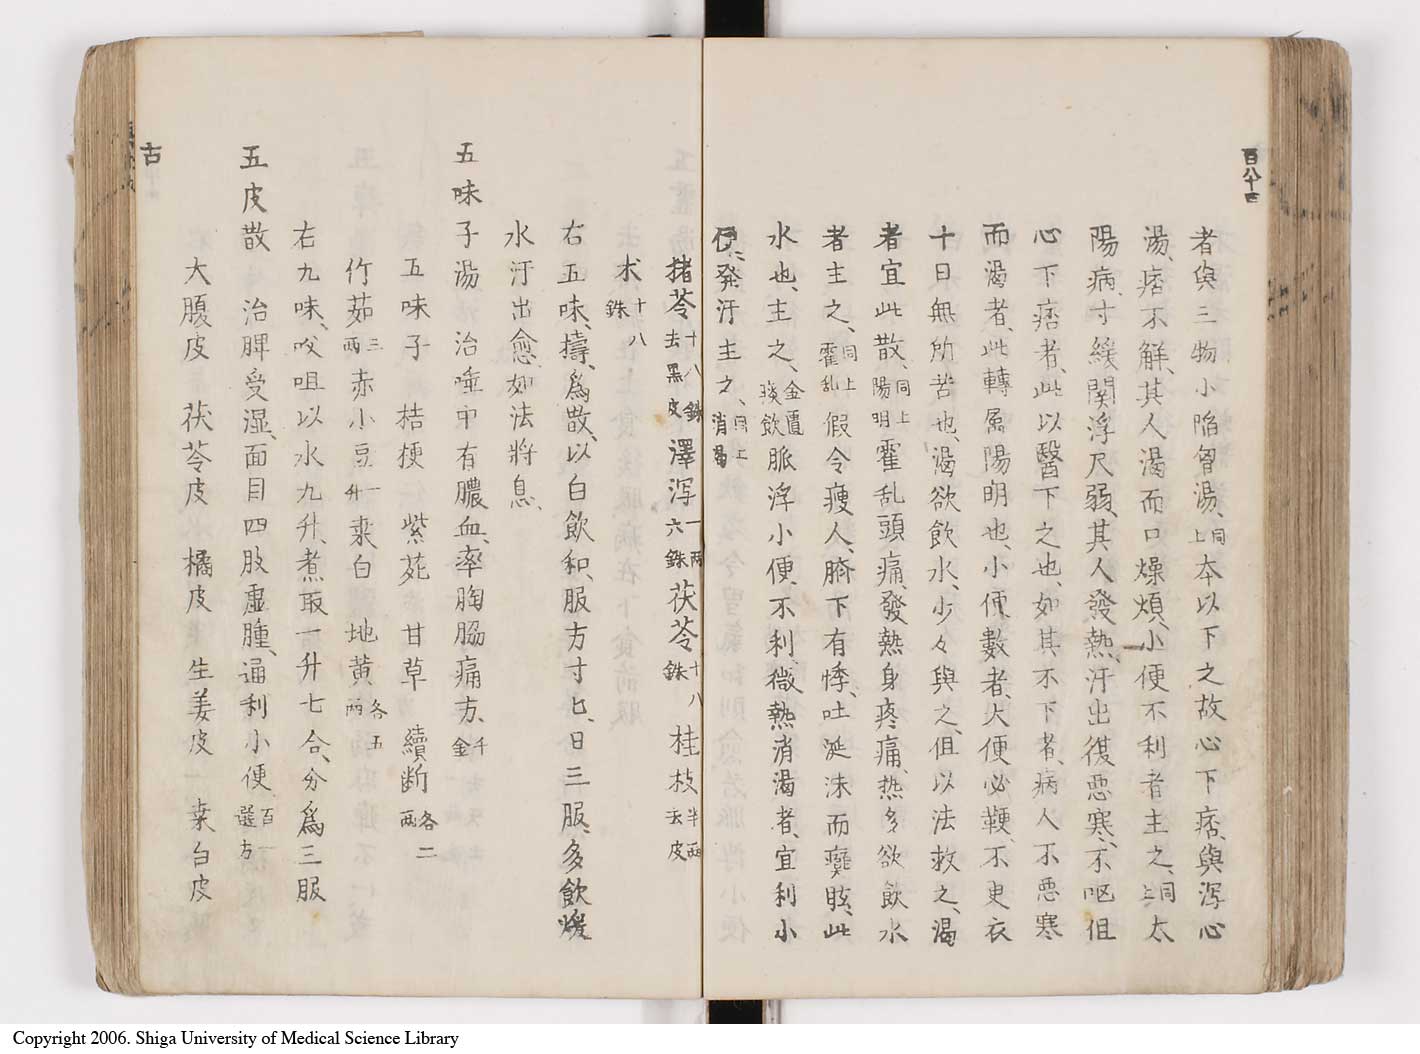 百八十四
者與三物小陷胷湯、同上本以下之故心下痞、與瀉心
湯、痞不解、其人渴而口燥煩、小便不利者主之、同上太
陽病、寸緩関浮尺弱、其人發熱、汗出復悪寒、不呕但
心下痞者、此以醫下之也、如其不下者、病人不悪寒
而渴者、此轉属陽明也、小便數者、大便必鞕、不更衣
十日無所苦也、渴欲飲水、少々與之、但以法救之、渴
者宜此散、同上陽明霍乱頭痛、發熱身疼痛、热多欲飲水
者主之、同上霍乱假令瘦人、臍下有悸、吐涎沫而癲眩、此
水也、主之、金匱痰飲脈浮小便、不利、微熱消渴者、宜利小
便、発汗主之、同上消渴
猪苓十八銖去黒皮澤瀉一兩六銖茯苓十八銖桂枝半兩去皮
朮十八銖
右五味、擣、爲散、以白飲和、服方寸匕、日三服、多飲煖
水汗出愈、如法將息、
五味子湯 治唾中有膿血、牽胸脇痛方、千金
五味子 桔梗 紫菀 甘草 續断各二兩
竹茹三兩赤小豆一升桒白 地黄各五兩
右九味、㕮咀以水九升、煮取一升七合、分爲三服
五皮散 治脾受湿、面目四肢虚腫、通利小便、百一選方
大腹皮 茯苓皮 橘皮 生姜皮 桒白皮
古